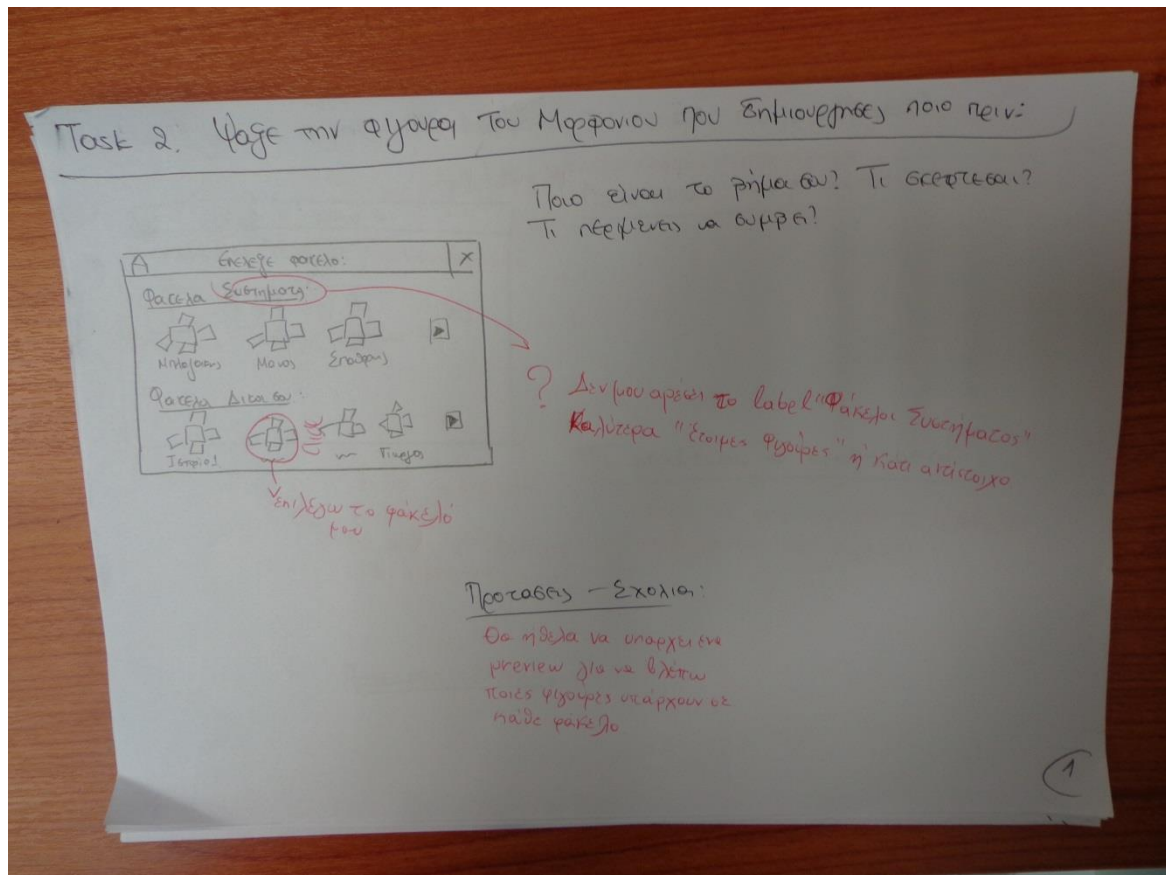 Task 2: Ψαξε την φιγουρα του Μορφονιου που δημιουργησες ποιο πριν:
Ποιο ειναι το βήμα σου? Τι σκεφτεσαι?
Τι περιμενεις να συμβει?
Επελεξε φακελο: X
Φακελα Συστηματος:
Μονος
Φακελα Δικα σου:
Ιστορια1
? Δεν μου αρέσει το label "Φάκελοι Συστήματος"
Καλύτερα "έτοιμες φιγούρες" ή κάτι αντίστοιχο
επιλέγω το φάκελό
μου
Προτασεις - Σχολια:
Θα ήθελα να υπάρχει ένα
preview για να βλέπω
ποιές φιγούρες υπάρχουν σε
κάθε φάκελο
1